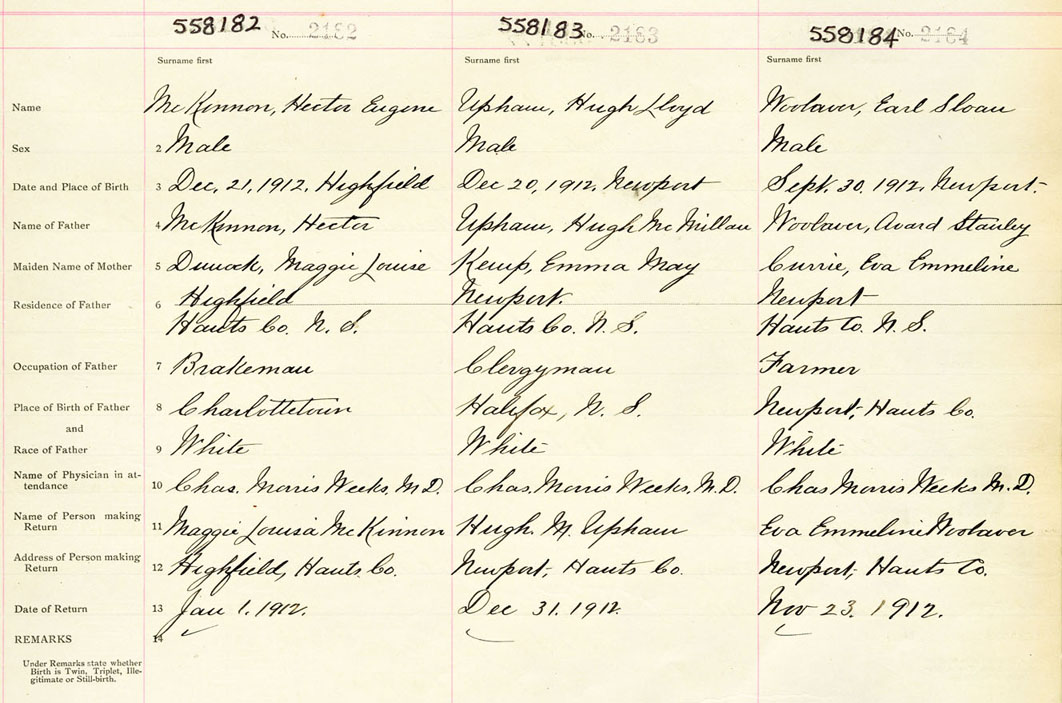 558182 No. 2182 558183 No. 2183 558184 No. 2184
Surname first Surname first Surname first
Name McKinnon, Hector Eugene Upham, Hugh Lloyd Woolaver, Earl Sloan
Sex 2 Male Male Male
Date and Place of Birth 3 Dec. 21, 1912. Highfield Dec 20, 1912. Newport Sept. 30, 1912. Newport.
Name of Father 4 McKinnon, Hector Upham, Hugh McMillan Woolaver, Avard Stanley
Maiden Name of Mother 5 Dimock, Maggie Louise Kemp, Emma May Currie, Eva Emmeline
Residence of Father 6 Highfield Newport. Newport
Hants Co. N. S. Hants Co. N. S. Hants Co. N. S.
Occupation of Father 7 Brakeman Clergyman Farmer
Place of Birth of Father 8 Charlottetown Halifax, N. S. Newport, Hants Co.
and
Race of Father 9 White White White
Name of Physician in at-
tendance 10 Chas. Morris Weeks, M.D. Chas. Morris Weeks, M.D. Chas Morris Weeks M.D.
Name of Person making
Return 11 Maggie Louisa McKinnon Hugh. M. Upham Eva Emmeline Woolaver
Address of Person making
Return 12 Highfield, Hants. Co. Newport, Hants Co. Newport, Hants Co.
Date of Return 13 Jan 1. 1912. Dec 31. 1912. Nov 23. 1912.
REMARKS 14
Under Remarks state whether
Birth is Twin, Triplet, Ille-
gitimate or Still-birth.